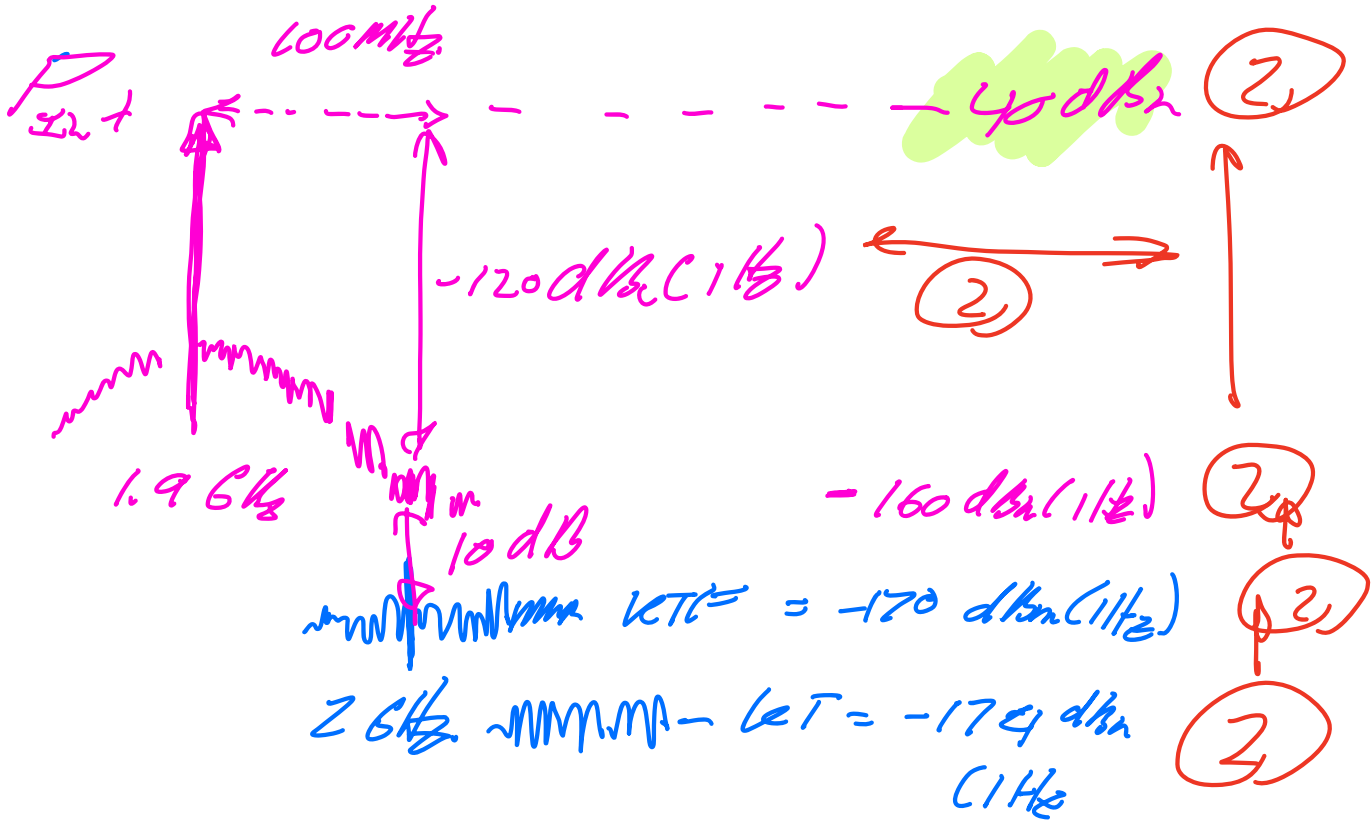 100MHz
P Int
-40 dBm 2
-120 dBm (1Hz)
2
1.9 GHz
- 160 dBm (1Hz) 2
10 dB
KTF = -170 dBm (1Hz) 2
2 GHz KT = -174 dBm 2
(1Hz